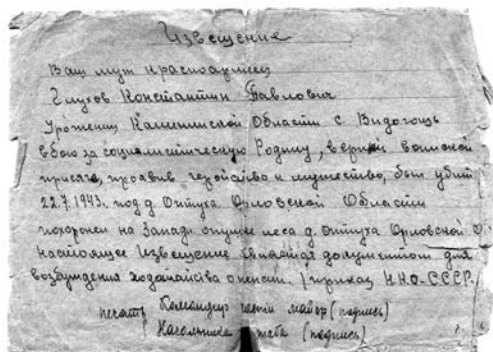 Извещение
Ваш муж красноармеец
Глухов Константин Павлович
Уроженец Калининской Области с. Видогощь
в бою за социалистическую Родину, верный воинской
присяге, проявив геройство и мужество, был убит
22.7.1943. под д. Оптуха Орловской Области
похоронен на Западн опушке леса д. Оптуха Орловской О
настоящее Извещение является документом для
возбуждения ходатайства о пенсии. (приказ НКО-СССР.
печать Командир части майор (подпись)
Начальника штаба (подпись)